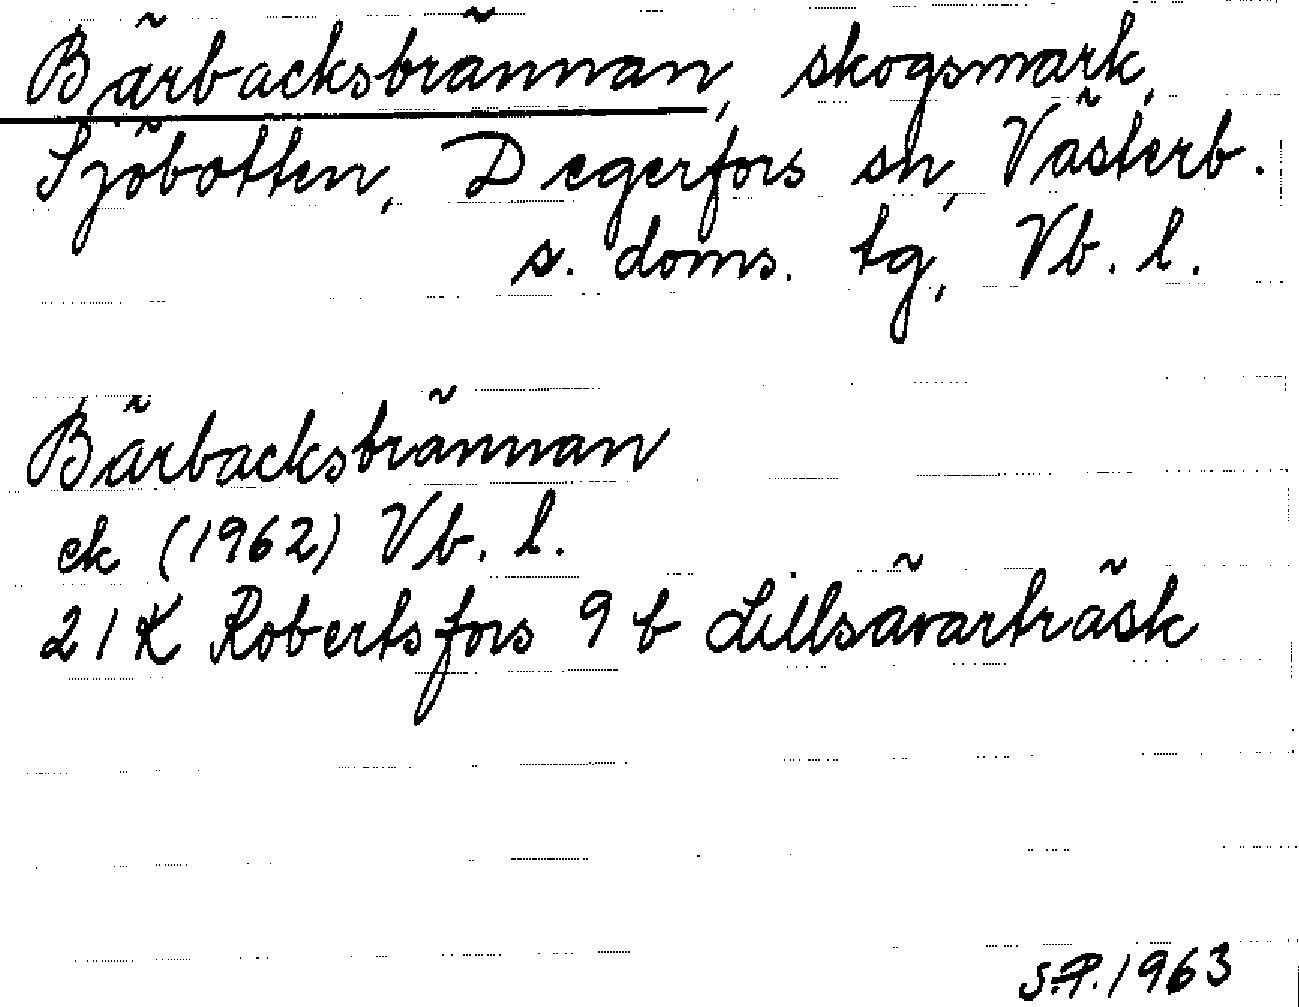 Bärbacksbrännan, skogsmark,
Sjöbotten, Degerfors sn, Västerb.
s. doms. tg, Vb. l.
Bärbacksbrännan
ek (1962) Vb. l.
21K Robertsfors 9 b Lillsävarträsk
S.P. 1963